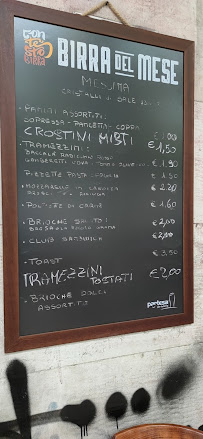 BIRRA DEL MESE
MESSINA
CRISTALLI DI SALE
PANINI ASSORTITI:
SOPRESSA - PANCETTA - COPPA
CROSTINI MISTI €1,00
TRAMEZZINI: €1,50
BACCALÀ RADICCHIO
GAMBERETTI UOVA TONNO €1,90
PIZZETTE PASTA SFOGLIA €1,50
MOZZARELLE IN CARROZZA €2,20
POLPETTE DI CARNE €1,60
BRIOCHE SALATO: €2,00
CLUB SANDWICH €2,00
TOAST €3,50
TRAMEZZINI TOSTATI €2,00
BRIOCHE DOLCI
ASSORTITO